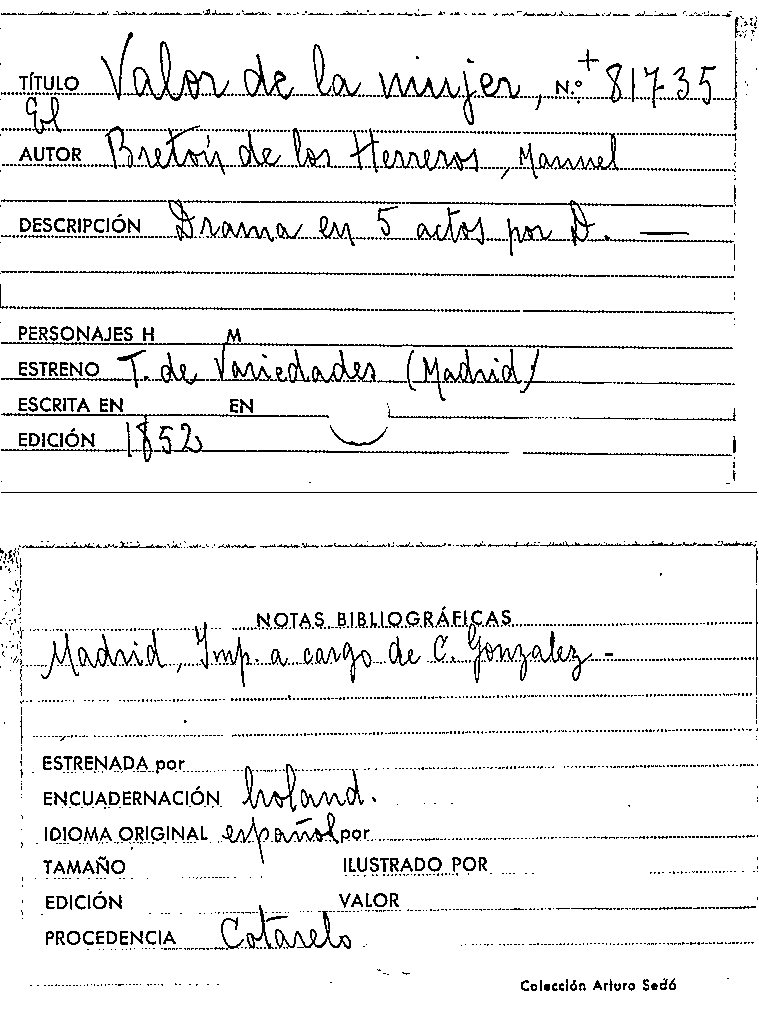 TÍTULO Valor de la mujer, N.º + 81735
El
AUTOR Bretón de los Herreros, Manuel
DESCRIPCIÓN Drama en 5 actos por D. —
PERSONAJES H M
ESTRENO T. de Variedades (Madrid)
ESCRITA EN EN
EDICIÓN 1852
NOTAS BIBLIOGRÁFICAS
Madrid, Imp. a cargo de C. Gonzalez -
ESTRENADA por
ENCUADERNACIÓN holand.
IDIOMA ORIGINAL español por
TAMAÑO ILUSTRADO POR
EDICIÓN VALOR
PROCEDENCIA Cotarelo
Colección Arturo Sedó